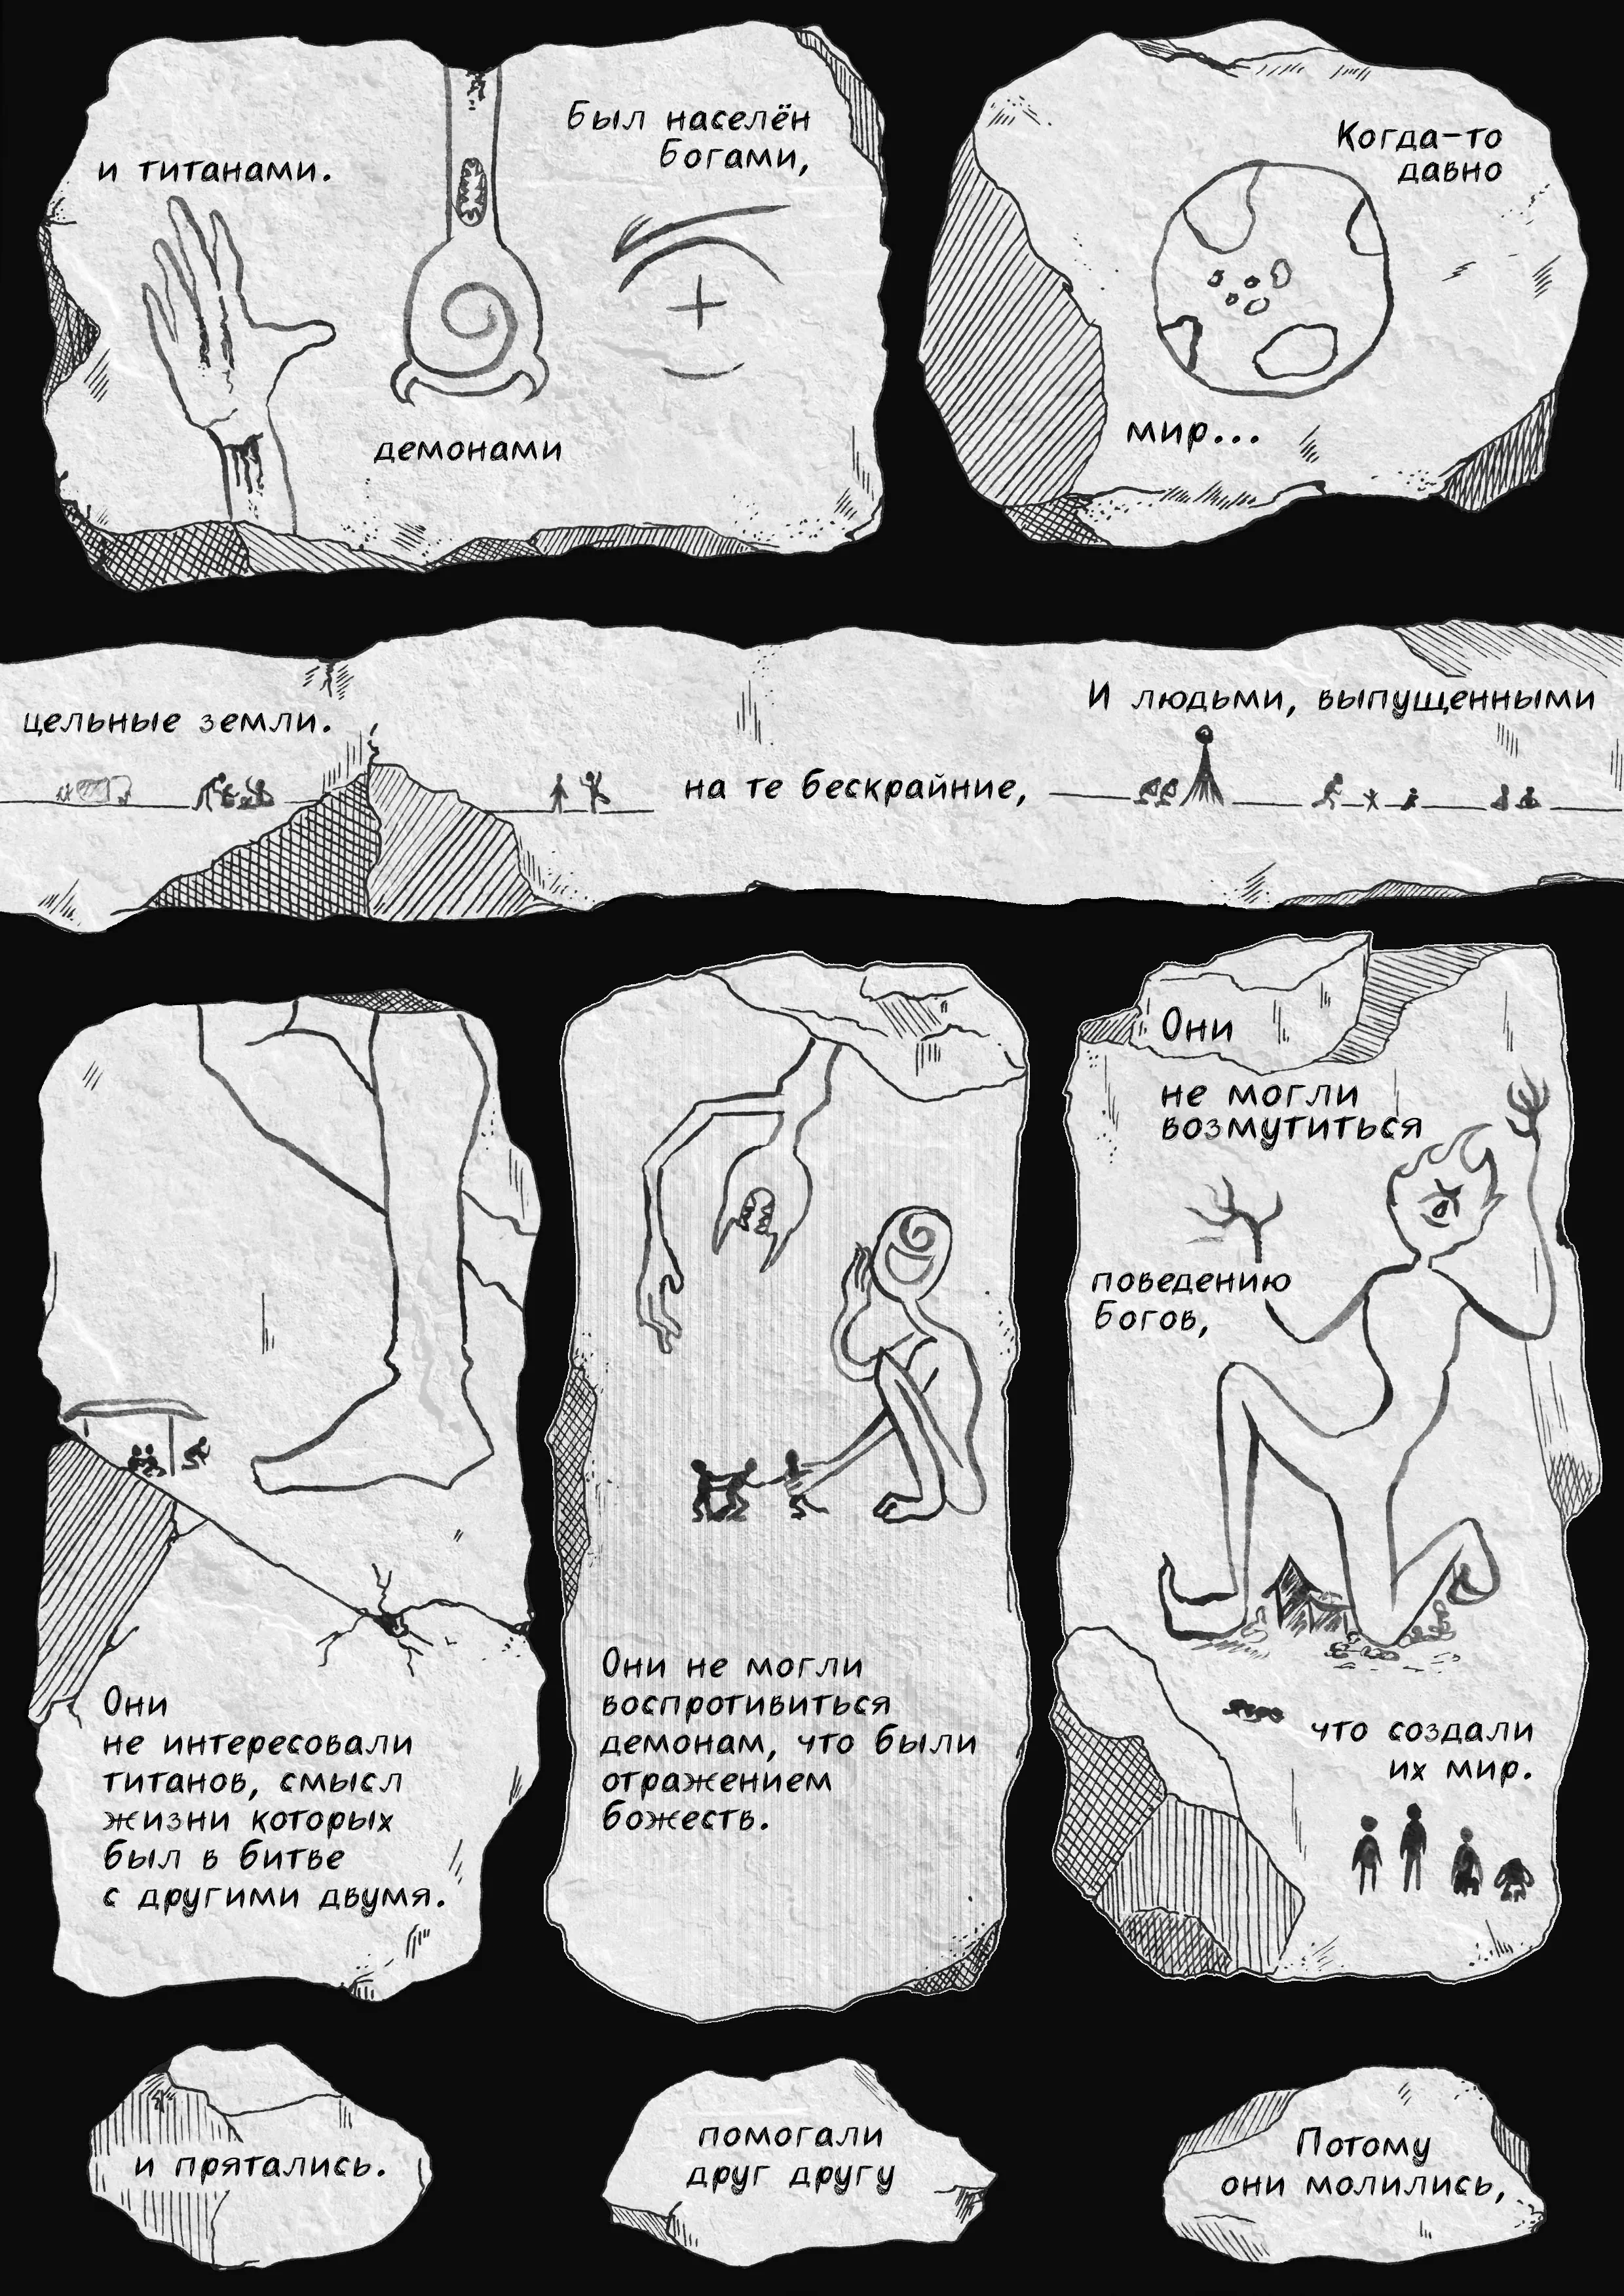 Когда-то
давно
мир...
Был населён
Богами,
демонами
и титанами.
И людьми, выпущенными
на те бескрайние,
цельные земли.
Они
не могли
возмутиться
поведению
Богов,
что создали
их мир.
Они не могли
воспротивиться
демонам, что были
отражением
божеств.
Они
не интересовали
титанов, смысл
жизни которых
был в битве
с другими двумя.
Потому
они молились,
помогали
друг другу
и прятались.